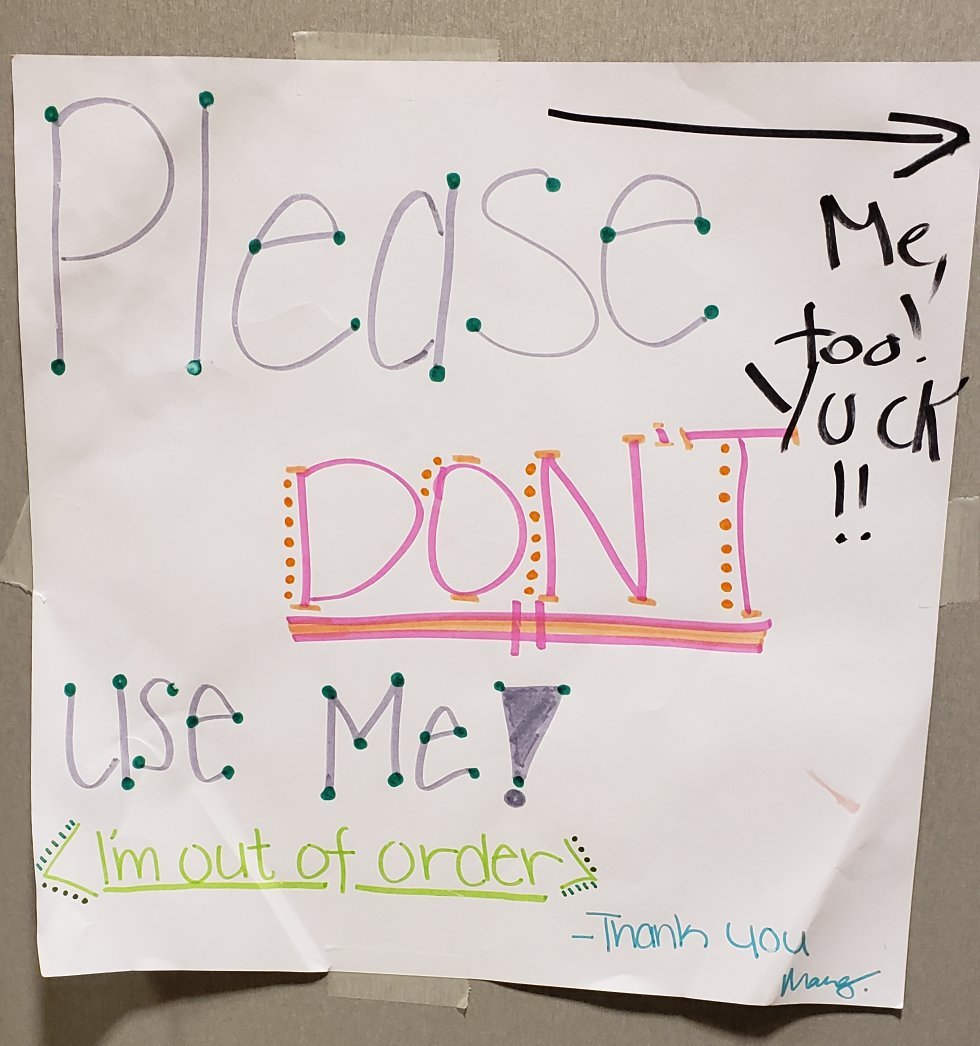 Please
DON'T
use Me!
I'm out of order
-Thank you
Mang.
Me,
too!
Yuck
!!